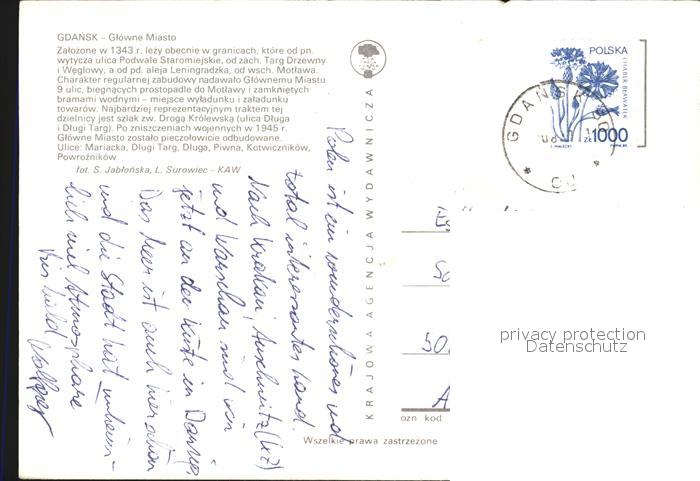 GDAŃSK – Główne Miasto
Założone w 1343 r. leży obecnie w granicach, które od pn.
wytycza ulica Podwale Staromiejskie, od zach. Targ Drzewny
i Węglowy, a od pd. aleja Leningradzka, od wsch. Motława.
Charakter regularnej zabudowy nadawało Głównemu Miastu
9 ulic, biegnących prostopadle do Motławy i zamkniętych
bramami wodnymi – miejsce wyładunku i załadunku
towarów. Najbardziej reprezentacyjnym traktem tej
dzielnicy jest szlak zw. Drogą Królewską (ulica Długa
i Długi Targ). Po zniszczeniach wojennych w 1945 r.
Główne Miasto zostało pieczołowicie odbudowane.
Ulice: Mariacka, Długi Targ, Długa, Piwna, Kotwiczników,
Powroźników
fot. S. Jabłońska, L. Surowiec – KAW
Polen ist ein wunderschönes und
total interessantes Land.
Nach Krakau, Auschwitz (KZ)
und Warschau sind wir
jetzt an der Küste in Danzig.
Das Meer ist auch hier schon
und die Stadt hat unheim-
lich viel Atmosphäre
Bis bald
KRAJOWA AGENCJA WYDAWNICZA
POLSKA
CHABER BŁAWATEK
zł 1000
GDAŃSK
50
A
ozn kod
Wszelkie prawa zastrzeżone
privacy protection
Datenschutz